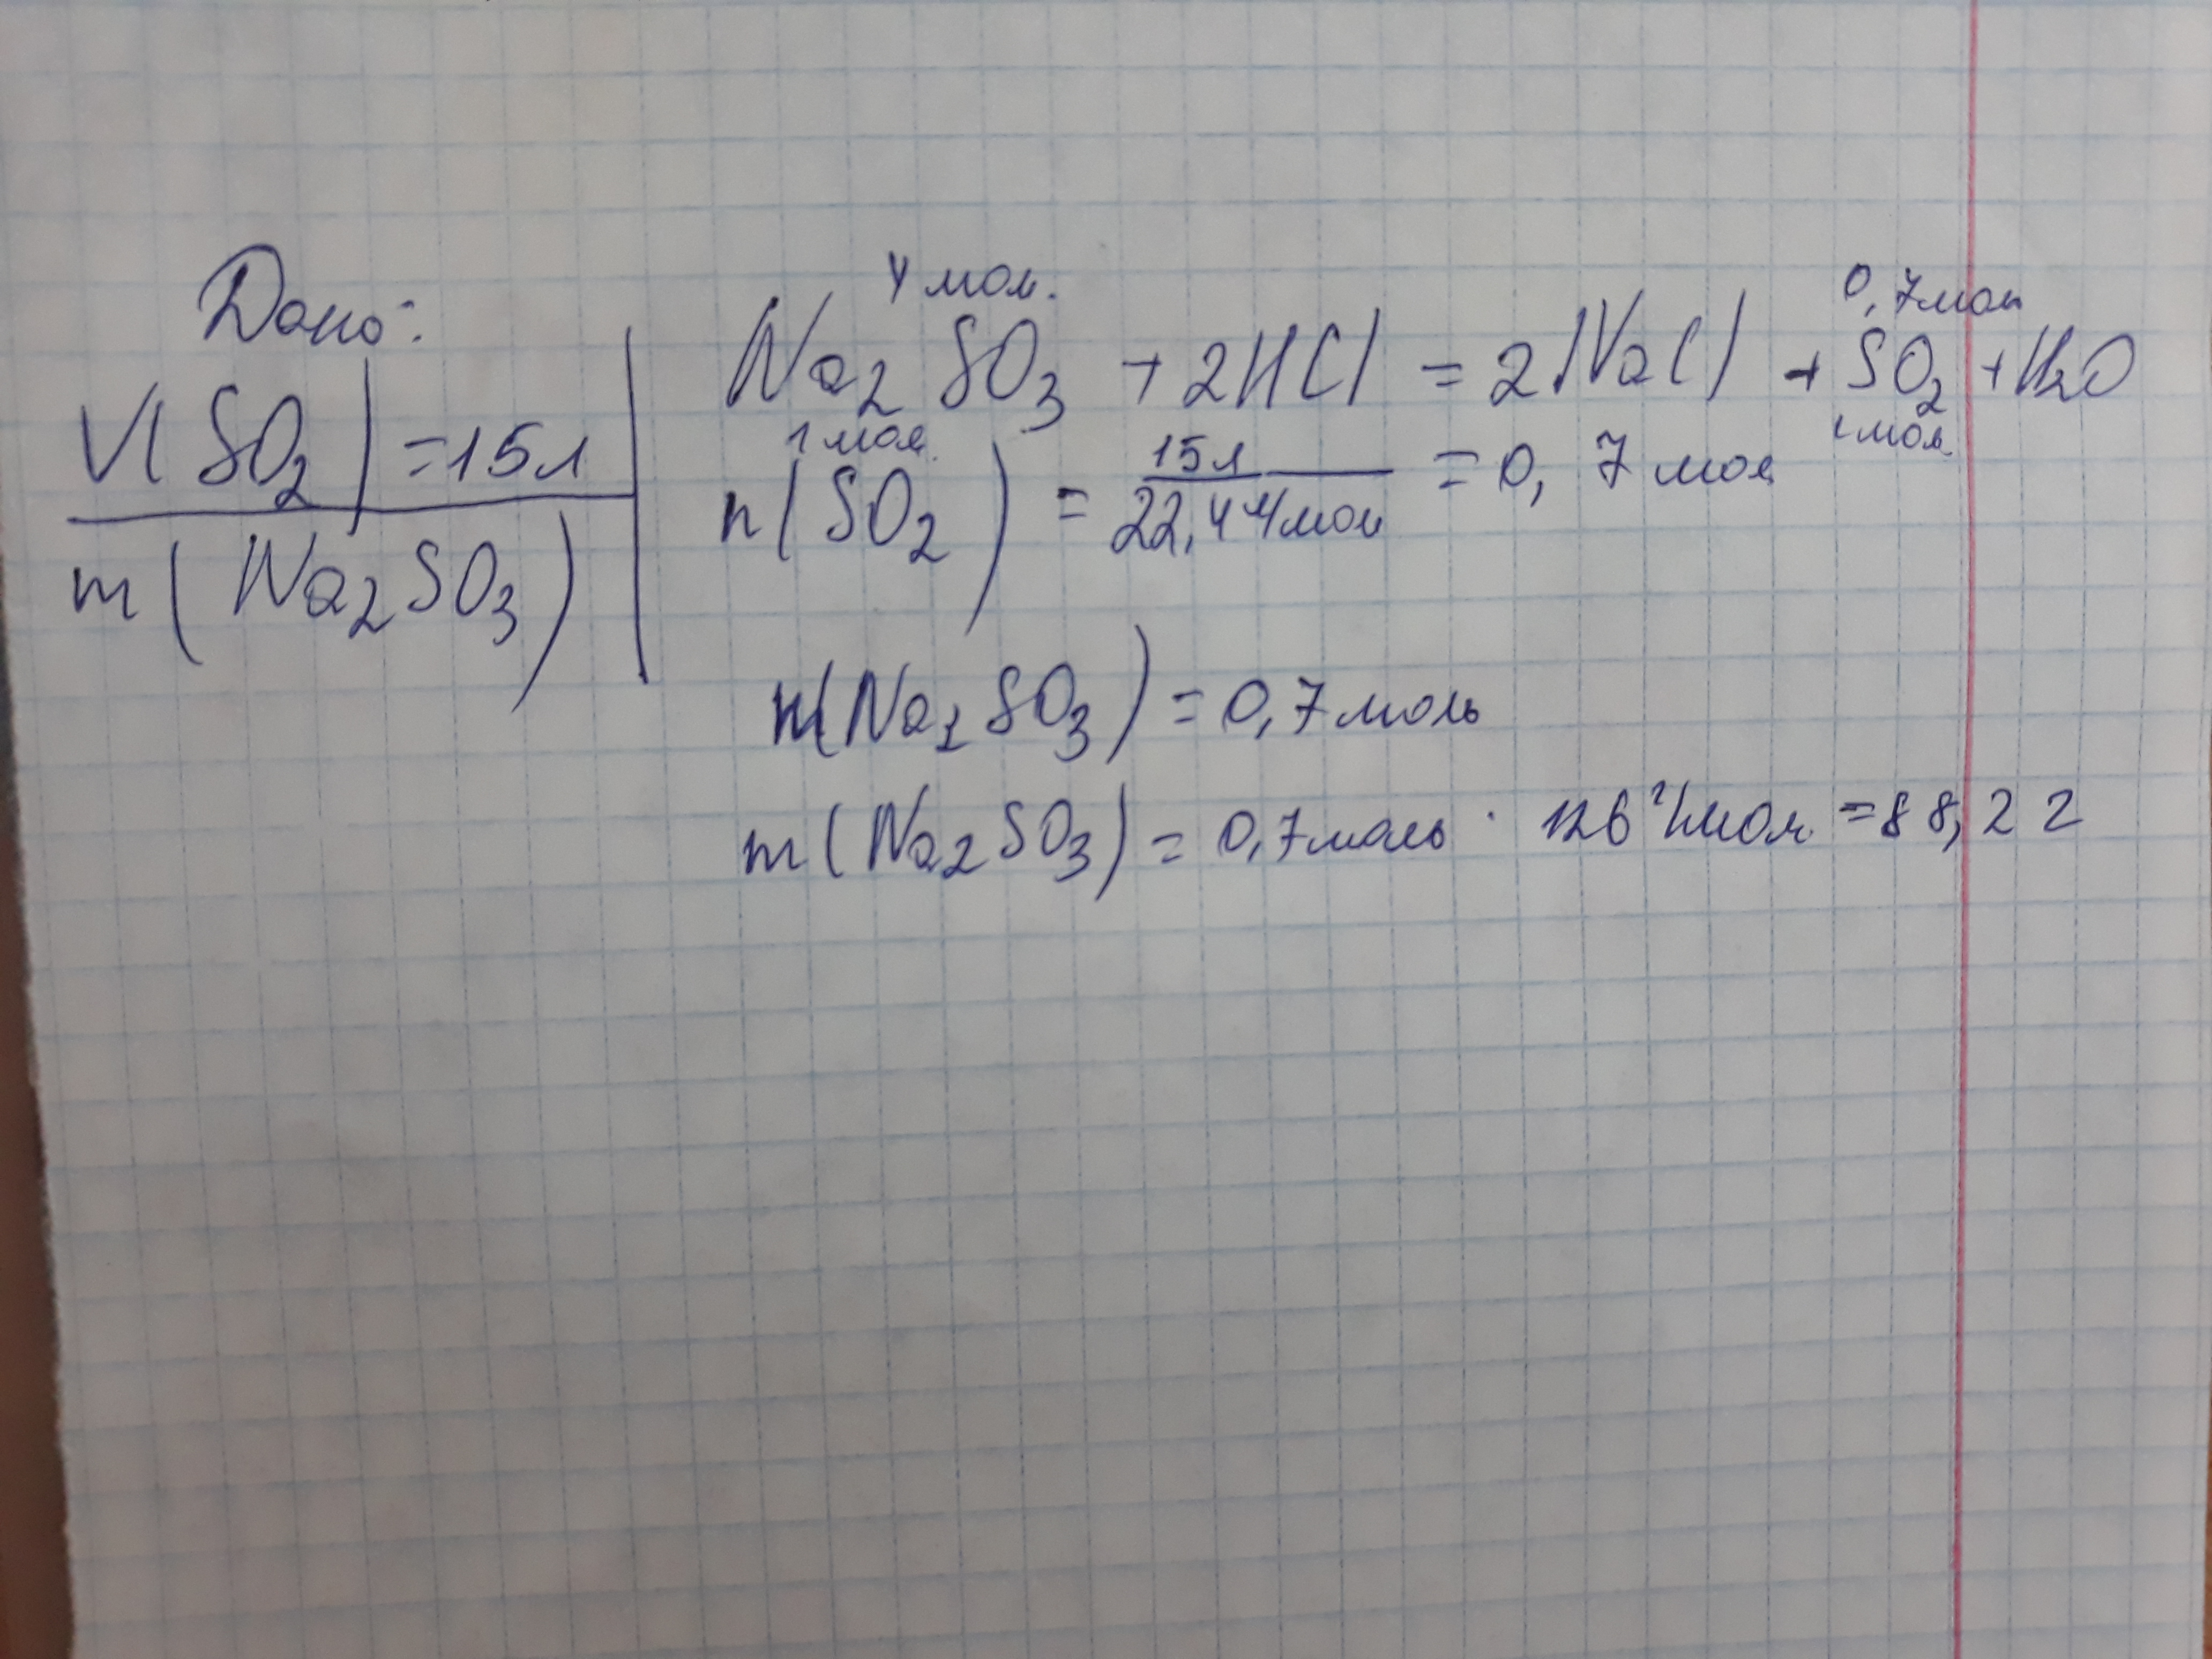 Дано:
V(SO2) = 15л
m(Na2SO3)
У мол.
0,7мол
Na2SO3 + 2HCl = 2NaCl + SO2 + H2O
1 мол.
1 мол
n(SO2) = 15л / 22,4 л/мол = 0,7 мол
n(Na2SO3) = 0,7 моль
m(Na2SO3) = 0,7моль · 126 г/мол = 88,2 г